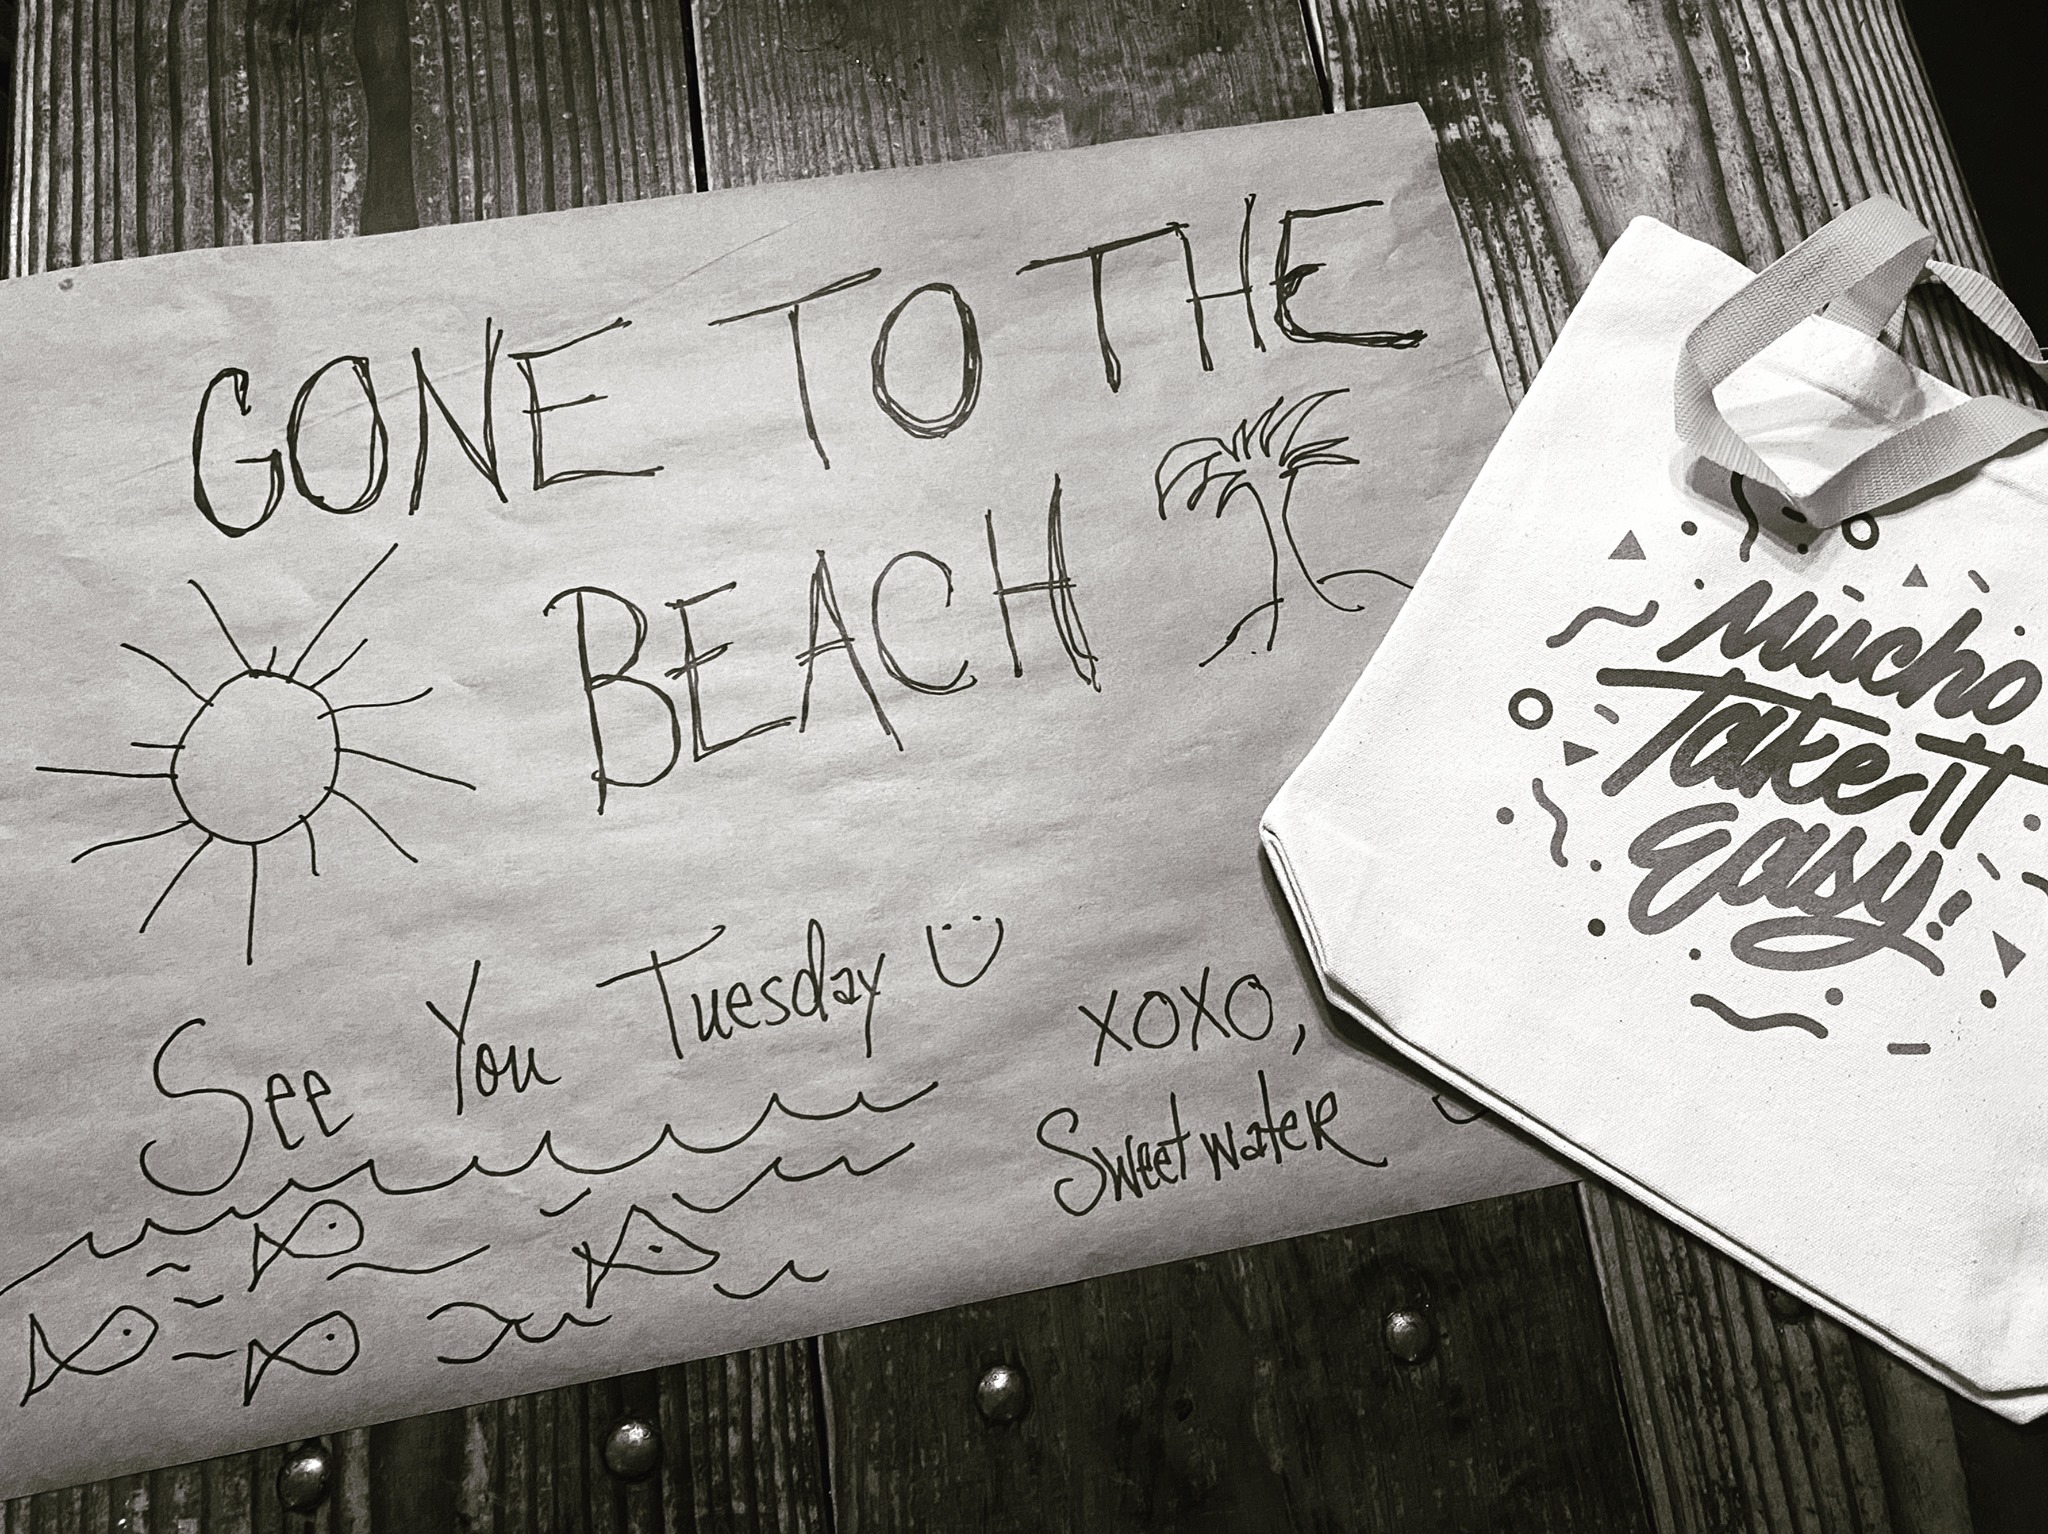 GONE TO THE
BEACH
See You Tuesday
XOXO,
Sweetwater
Mucho
Take It
Easy!